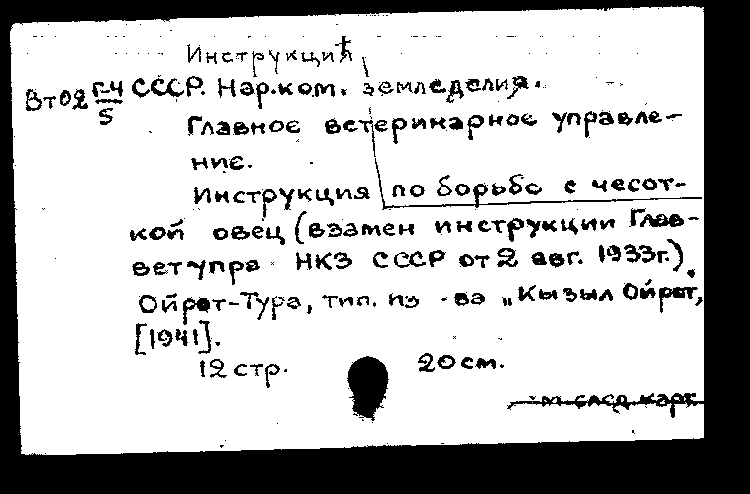 Инструкция
Вт02 Г-4/5 СССР. Нар.ком. земледелия.
Главное ветеринарное управле-
ние.
Инструкция по борьбе с чесот-
кой овец (взамен инструкции Глав-
ветупра НКЗ СССР от 2 авг. 1933г.).
Ойрот-Тура, тип. из-ва „Кызыл Ойрот,
[1941].
12 стр. 20 см.
см след. карт.